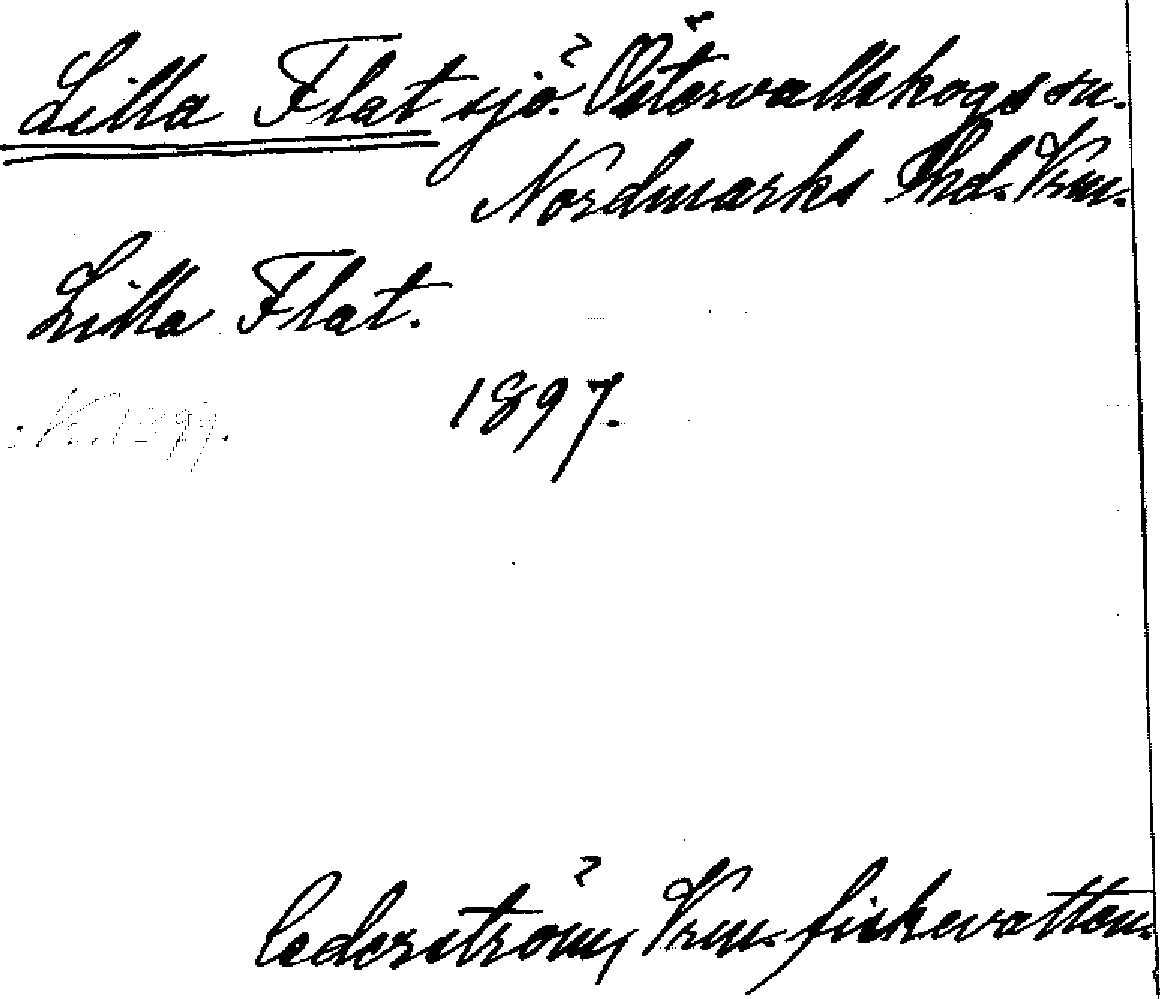 Lilla Flat sjö. Östervallskogs sn.
Nordmarks Hd. Vrm.
Lilla Flat.
1897.
Cederström, Vrm. fiskevatten.